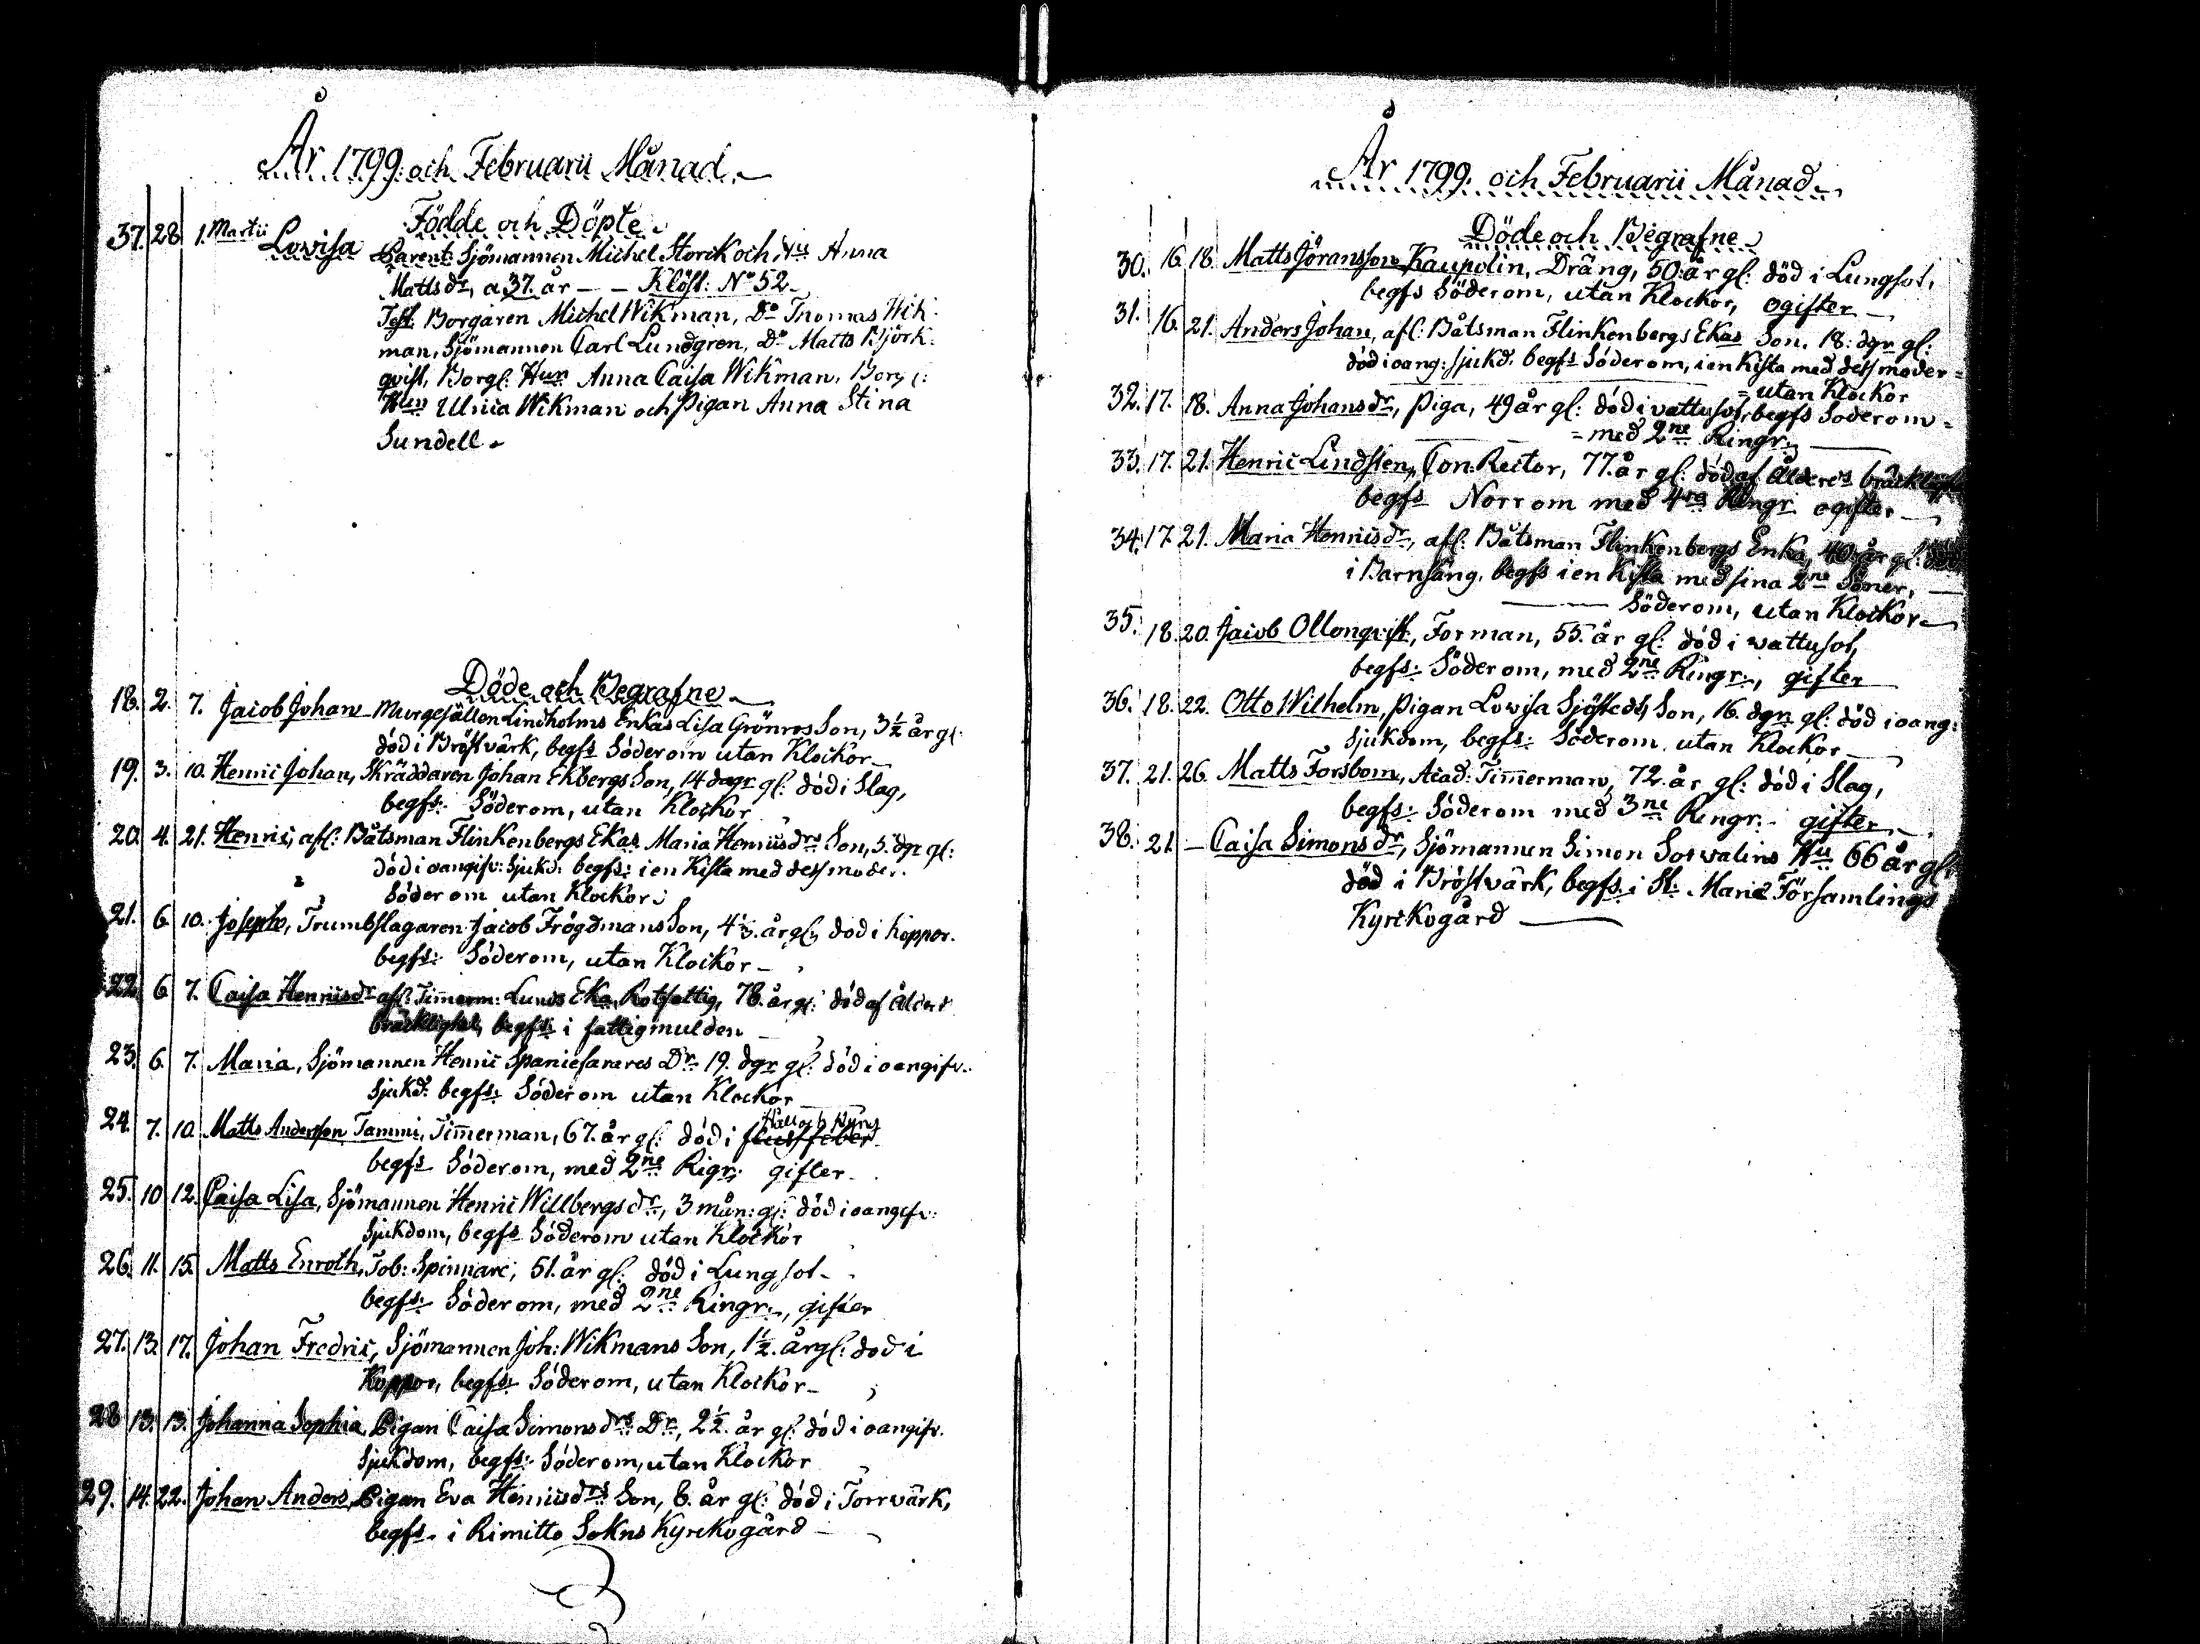 År 1799. och Februarii Månad.
Födde och Döpte
37. 28. 1. Martii Lovisa Parent: Sjömannen Michel Storck och Hu Anna
Matts dr, a 37. år – – Klöst: No 52.
Test: Borgaren Michel Wikman, Do Thomas Wik-
man, Sjömannen Carl Lundgren, Do Matts Björk-
qvist, Borgl: Hun Anna Caisa Wikman, Borgl:
Hun Ulrica Wikman och Pigan Anna Stina
Sundell.
Döde och Begrafne
18. 2. 7. Jacob Johan Murgesällen Lindholms Enkas Lisa Grönros Son, 3½ år gl:
död i Bröstvärk, begfs Söderom utan Klockor
19. 3. 10. Henric Johan, Skräddaren Johan Ekbergs Son, 14 dagr gl: död i Slag,
begfs: Söderom, utan Klockor
20. 4. 21. Henric, afl: Båtsman Flinkenbergs Ekas Maria Henricsdrs Son, 5. dgr gl:
död i oangifv: Sjukd: begfs: i en Kista med dess moder.
Söderom utan Klockor
21. 6. 10. Joseph, Trumbslagaren Jacob Frögdmans Son, 4⅓. år gl: död i koppor.
begfs: Söderom, utan Klockor
22. 6. 7. Caisa Henricsdr afl: Timerm: Lunds Eka, Rotfattig, 78. år gl: död af Ålderd
bräcklighet, begfs: i fattigmulden
23. 6. 7. Maria, Sjömannen Henric Dr 19. dgr gl: död i oangifv.
Sjukd: begfs: Söderom utan Klockor
24. 7. 10. Matts Andersson Tammi, Timerman, 67. år gl: död i flussfeber Håll och Styng
begfs Söderom, med 2ne Rigr: gifter
25. 10. 12. Caisa Lisa, Sjömannen Henric Willbergs dr, 3 mån: gl: död i oangifv:
Sjukdom, begfs Söderom utan Klockor
26. 11. 15. Matts Enroth, Tob: Spinnare, 51. år gl: död i Lungsot
begfs: Söderom, med 2ne Ringr:, gifter
27. 13. 17. Johan Fredric, Sjömannen Joh: Wikmans Son, 1½. år gl: död i
Koppor, begfs: Söderom, utan Klockor
28. 13. 13. Johanna Sophia, Pigan Caisa Simonsdrs Dr, 2½. år gl: död i oangifv.
Sjukdom, begfs: Söderom, utan Klockor
29. 14. 22. Johan Anders, Pigan Eva Henricsdrs Son, 6. år gl: död i Torrvärk,
begfs. i Rimitto Sokns Kyrckogård
År 1799. och Februarii Månad.
Döde och Begrafne
30. 16. 18. Matts Jöransson Kaupolin, Dräng, 50. år gl: död i Lungsot,
begfs Söderom, utan Klockor, ogifter
31. 16. 21. Anders Johan, afl: Båtsman Flinkenbergs Ekas Son. 18. dgr gl:
död i oang: sjukd: begfs Söderom, i en Kista med dess moder =
= utan Klockor
32. 17. 18. Anna Johansdr, Piga, 49 år gl: död i vattusot, begfs Söderom =
= med 2ne Ringr:
33. 17. 21. Henric Lindsten, Con: Rector, 77. år gl: död af Ålderes bräcklighet
begfs Norrom med 4ra Ringr ogifter
34. 17. 21. Maria Henricsdr, afl: Båtsman Flinkenbergs Enka, 40. år gl: död
i Barnsäng, begfs i en Kista med sina 2ne Söner,
Söderom, utan Klockor
35. 18. 20. Jacob Ollonqvist, Forman, 55. år gl: död i wattusot,
begfs: Söderom, med 2ne Ringr:, gifter
36. 18. 22. Otto Wilhelm, Pigan Lovisa Sjöstedts Son, 16. dgr gl: död i oang:
Sjukdom, begfs: Söderom, utan Klockor
37. 21. 26. Matts Forsbom, Acad: Timerman, 72. år gl: död i Slag,
begfs: Söderom med 3ne Ringr: gifter
38. 21. – Caisa Simonsdr, Sjömannen Simon Hu 66 år gl:
död i Bröstvärk, begfs i St: Mariæ Församlings
Kyrckogård